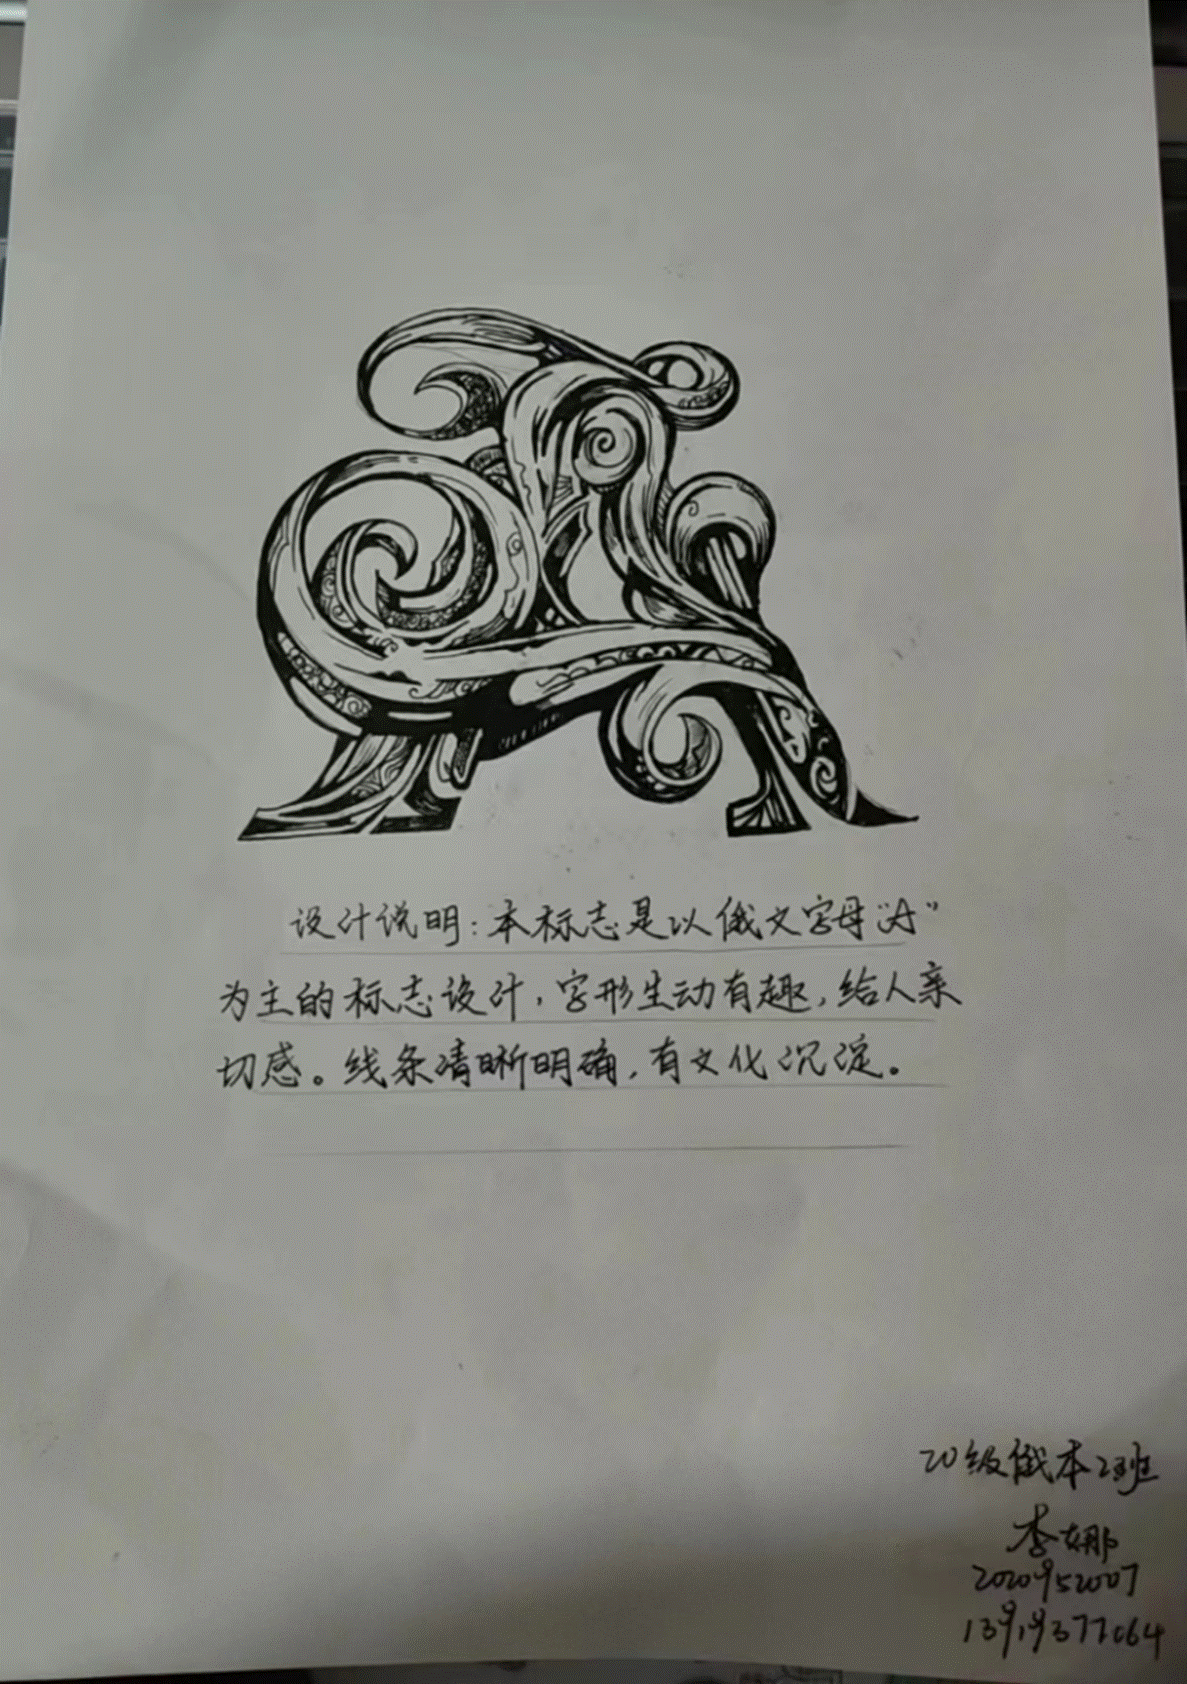 设计说明：本标志是以俄文字母“A”
为主的标志设计，字形生动有趣，给人亲
切感。线条清晰明确，有文化沉淀。
20级俄本2班
李娜
2020952007
13919377064